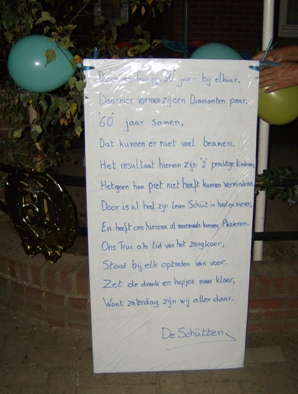 60 jaar bij elkaar.
Daarmee vormen zij een Diamanten paar.
"60" jaar samen,
Dat kunnen er niet veel beamen.
Het resultaat hiervan zijn "2" prachtige kinderen,
Hetgeen hun pret niet heeft kunnen verminderen.
Door is al heel zijn leven Schüt in hart en nieren,
En heeft ons hiermee al mogen Plezieren.
Ons Trui als lid van het zangkoor,
Stond bij elk optreden van voor.
Zet de drank en hapjes maar klaar,
Want zaterdag zijn wij allen daar.
De Schütten